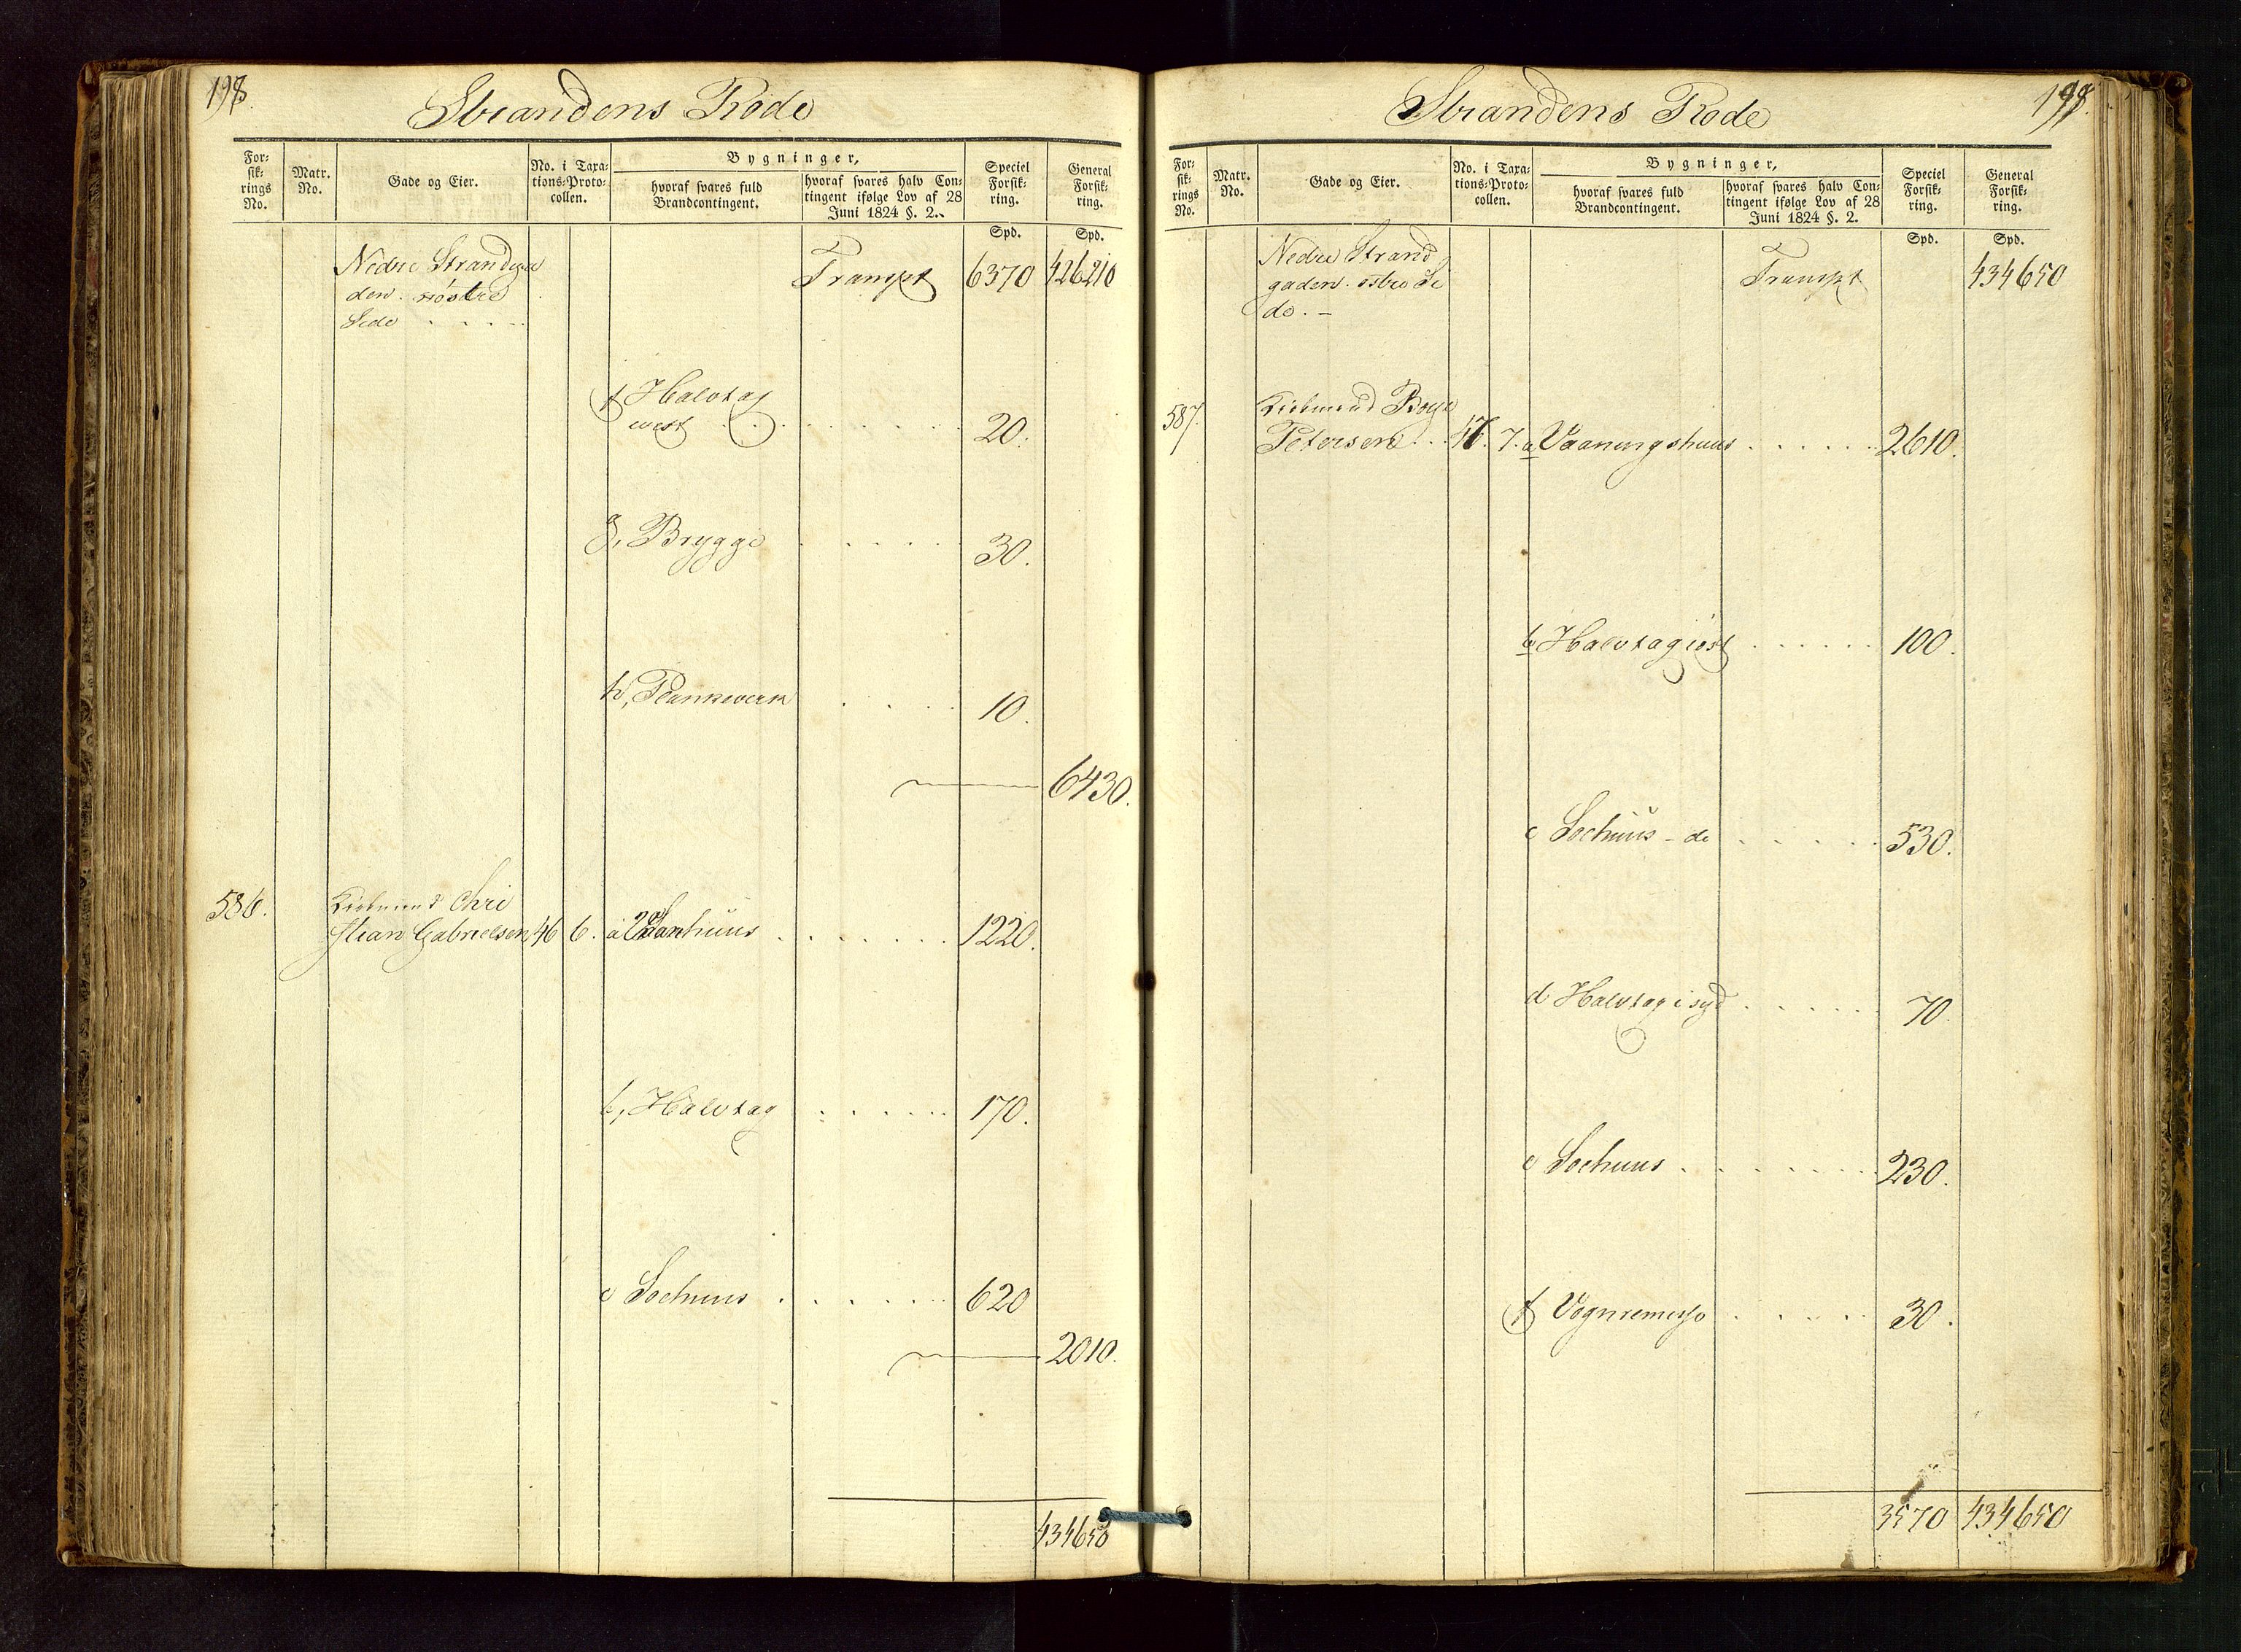 198.
Strandens Rode
For-
sik-
rings
No.
Matr.
No.
Gade og Eier.
No. i Taxa-
tions-Proto-
collen.
Bygninger,
hvoraf svares fuld
Brandcontingent.
hvoraf svares halv Con-
tingent ifølge Lov af 28
Juni 1824 §. 2.
Speciel
Forsik-
ring.
General
Forsik-
ring.
Spd.
Spd.
Nedre Strandga
den. östre
Side . . . . .
Transpt 6370 426210
f Halvtag
west . . . . . . 20.
g, Brygge . . . . 30.
h, Plankeverk . . . . 10.
6430.
586. Kiøbmand Chri
stian Gabrielsen 46 6. a Vaanhuus . . . . . . 1220.
b, Halvtag . . . . . . 170.
c Søehuus . . . . . . 620
2010.
434650
199.
Strandens Rode
For-
sik-
rings
No.
Matr.
No.
Gade og Eier.
No. i Taxa-
tions-Proto-
collen.
Bygninger,
hvoraf svares fuld
Brandcontingent.
hvoraf svares halv Con-
tingent ifølge Lov af 28
Juni 1824 §. 2.
Speciel
Forsik-
ring.
General
Forsik-
ring.
Spd.
Spd.
Nedre Strand
gaden. östre Si
de. –
Transpt 434650
587. Kiøbmand Boye
Petersen . . 47. 7. a Vaaningshuus . . . . . . 2610.
b Halvtag iøst . . . . . . 100.
c Søehuus – do . . . . . 530.
d Halvtag i syd . . . . . 70.
e Søehuus . . . . . . 230.
f Vognremesse . . . . . 30.
3570 434650